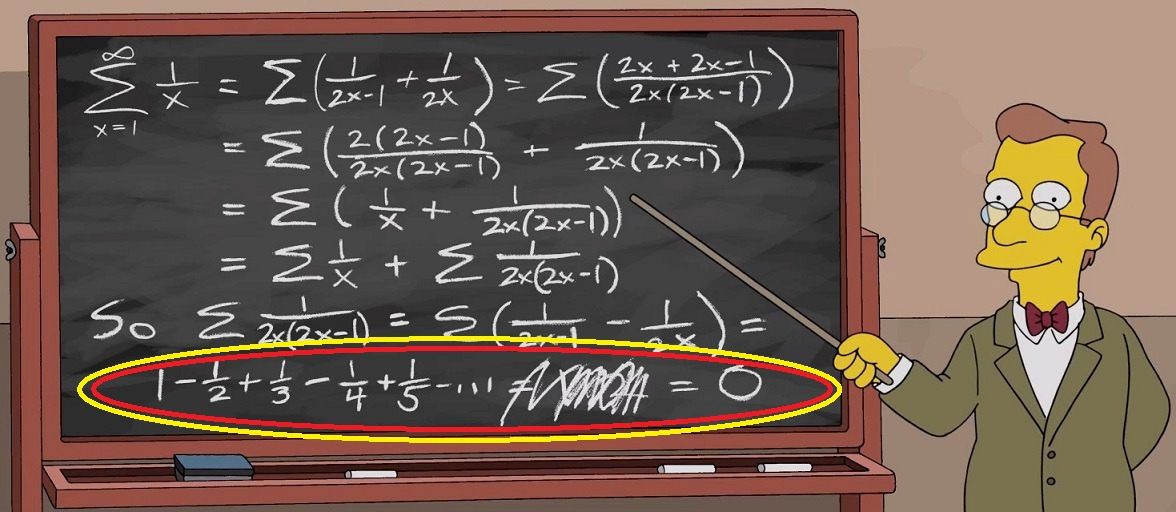 ∞ ∑ x=1 1/x = ∑(1/(2x-1) + 1/2x) = ∑((2x + 2x-1)/(2x(2x-1)))
= ∑(2(2x-1)/(2x(2x-1)) + 1/(2x(2x-1)))
= ∑(1/x + 1/(2x(2x-1)))
= ∑ 1/x + ∑ 1/(2x(2x-1))
So ∑ 1/(2x(2x-1)) = ∑(1/(2x-1) - 1/2x) =
1 - 1/2 + 1/3 - 1/4 + 1/5 - ... = 0